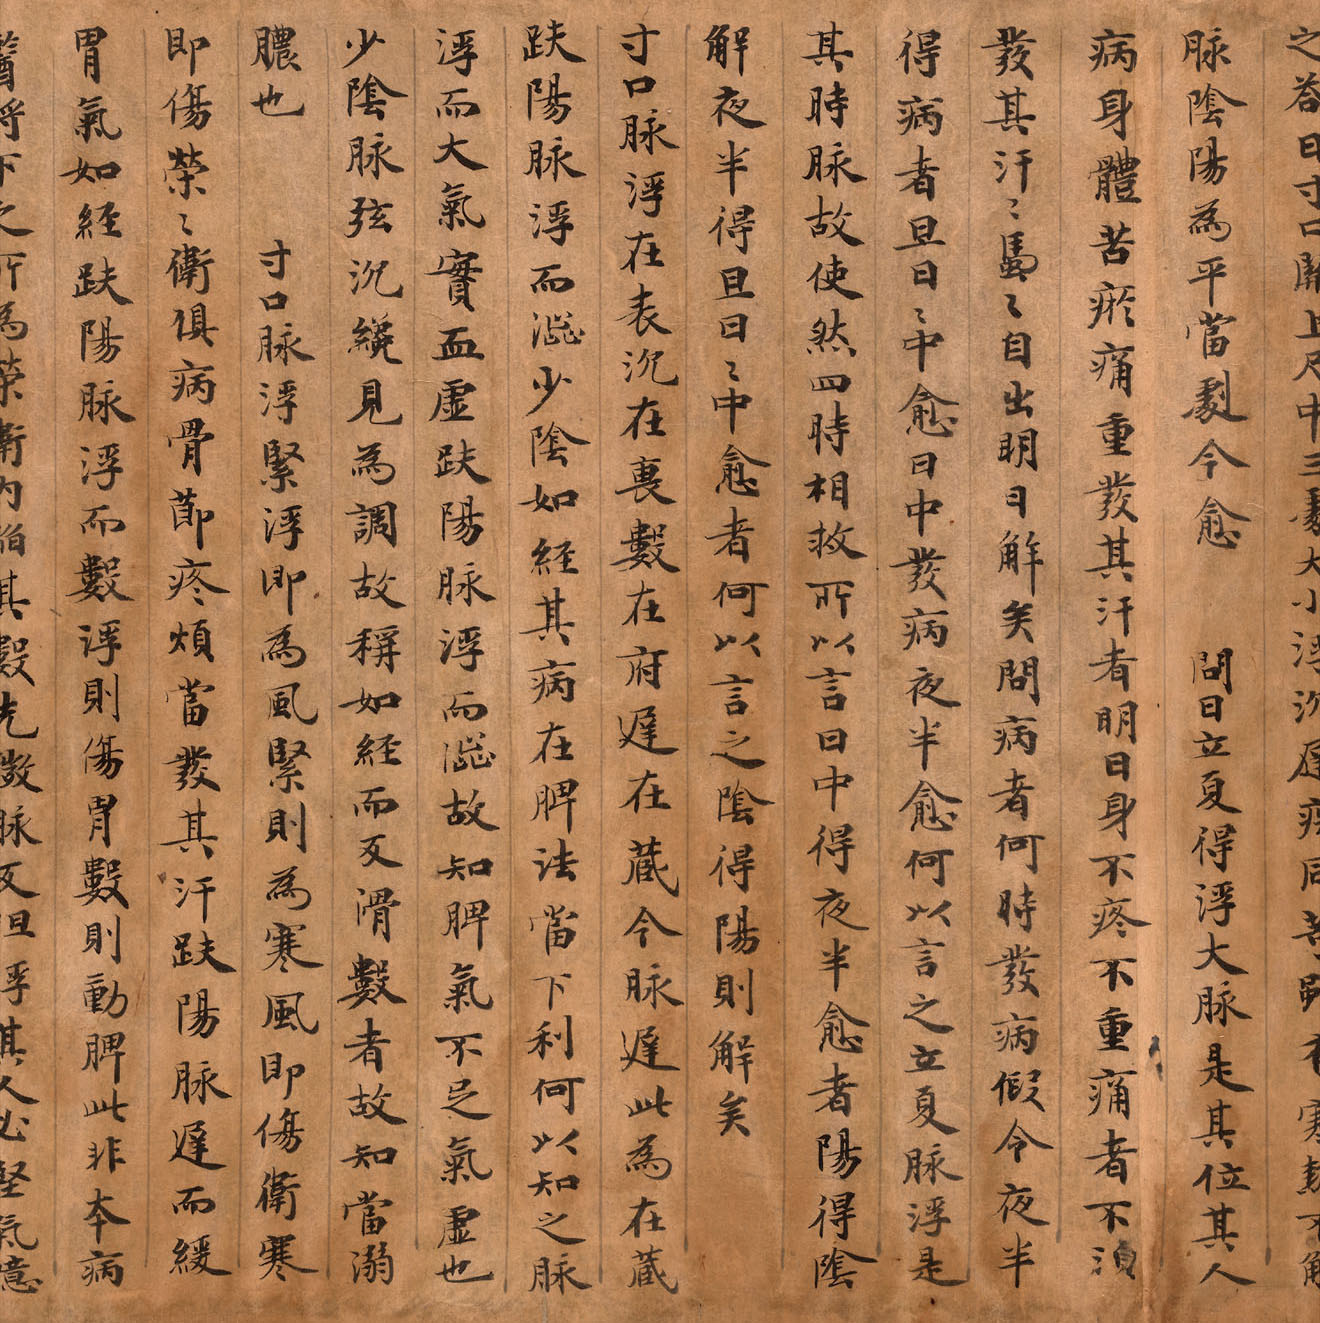 之荅曰寸口関上尺中三處大小浮沉遅疾同等雖有寒熱不解
脉陰陽為平當劇今愈　問曰立夏得浮大脉是其位其人
病身體苦瘀痛重發其汗者明日身不疼不重痛者不湏
發其汗〻濈〻自出明日解矣問病者何時發病假令夜半
得病者旦日〻中愈日中發病夜半愈何以言之立夏脉浮是
其時脉故使然四時相救所以言日中得夜半愈者陽得陰
解夜半得旦日〻中愈者何以言之陰得陽則解矣
寸口脉浮在表沉在裏數在府遅在蔵今脉遅此為在蔵
趺陽脉浮而澁少陰如経其病在脾法當下利何以知之脉
浮而大氣實血虚趺陽脉浮而澁故知脾氣不足氣虚也
少陰脉弦沉纔見為調故稱如経而反滑數者故知當溺
膿也　寸口脉浮緊浮即為風緊則為寒風即傷衛寒
即傷榮〻衛俱病骨莭疼煩當發其汗趺陽脉遅而緩
胃氣如経趺陽脉浮而數浮則傷胃數則動脾此非本病
醫将下之所為榮衛内陷其數先微脉反但浮其人必堅氣噫